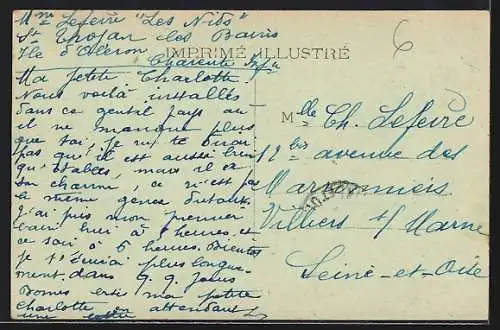 Mme Lefèvre "Les Nids"
St Trojan les Bains
Ile d'Oléron
Charente Infre
IMPRIMÉ ILLUSTRÉ
6
Ma petite Charlotte !
Nous voilà installés
dans ce gentil pays où
il ne manque plus
que toi, je ne te dirai
pas qu'il est aussi bien
qu'Etables, mais il a
son charme, ce n'est pas
le même genre du tout.
J'ai pris mon premier
bain hier à 5 heures, et
ce soir à 6 heures. Bientôt
je t'écrirai plus longue-
ment. dans q.q. jours
ma petite
Charlotte attendant
une
Mlle Ch. Lefèvre
12 bis avenue des
Marronniers
Villiers s/ Marne
Seine-et-Oise